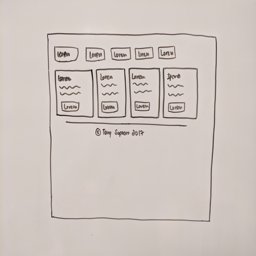 lorem lorem lorem lorem lorem
lorem lorem lorem
lorem lorem lorem lorem
© Tony 2017